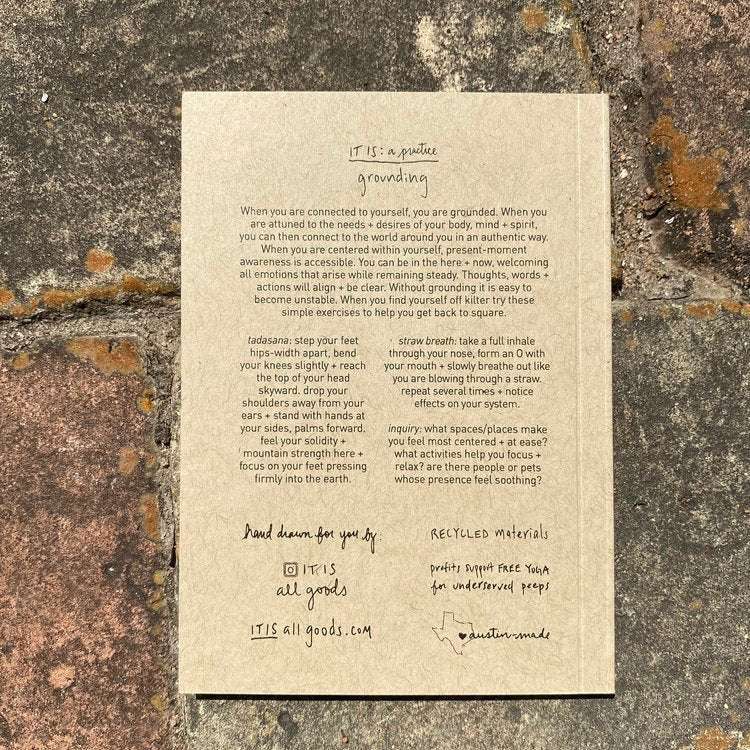 IT IS: a practice
grounding
When you are connected to yourself, you are grounded. When you
are attuned to the needs + desires of your body, mind + spirit,
you can then connect to the world around you in an authentic way.
When you are centered within yourself, present-moment
awareness is accessible. You can be in the here + now, welcoming
all emotions that arise while remaining steady. Thoughts, words +
actions will align + be clear. Without grounding it is easy to
become unstable. When you find yourself off kilter try these
simple exercises to help you get back to square.
tadasana: step your feet
hips-width apart, bend
your knees slightly + reach
the top of your head
skyward. drop your
shoulders away from your
ears + stand with hands at
your sides, palms forward.
feel your solidity +
mountain strength here +
focus on your feet pressing
firmly into the earth.
straw breath: take a full inhale
through your nose, form an O with
your mouth + slowly breathe out like
you are blowing through a straw.
repeat several times + notice
effects on your system.
inquiry: what spaces/places make
you feel most centered + at ease?
what activities help you focus +
relax? are there people or pets
whose presence feel soothing?
hand drawn for you by:
IT IS
all goods
IT IS all goods.com
RECYCLED materials
profits support FREE YOGA
for underserved peeps
austin-made